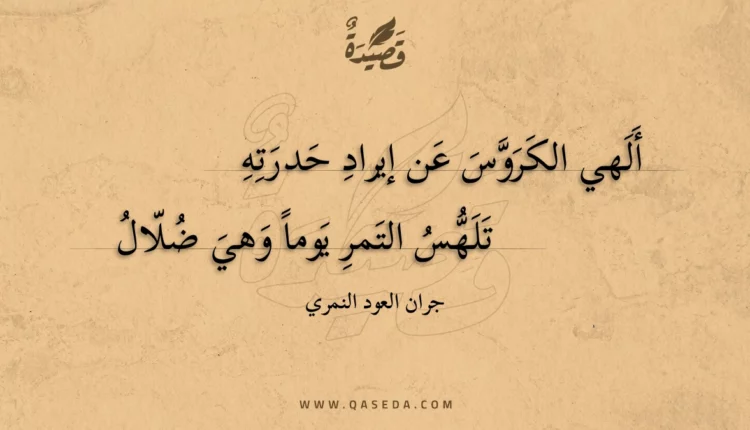 قَصِيدَةٌ
أَلَهي الكَرَوَّسَ عَن إيرادِ حَدرَتِهِ
تَلَهُّسُ التَمرِ يَوماً وَهيَ ضُلّالُ
جران العود النمري
WWW.QASEDA.COM